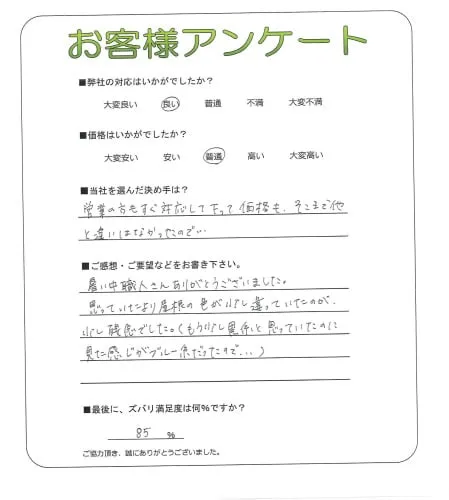 お客様アンケート
■弊社の対応はいかがでしたか？
大変良い 良い 普通 不満 大変不満
■価格はいかがでしたか？
大変安い 安い 普通 高い 大変高い
■当社を選んだ決め手は？
営業の方もすぐ対応して下って価格も、そこまで他
と違いはなかったので…
■ご感想・ご要望などをお書き下さい。
暑い中職人さんありがとうございました。
思っていたより屋根の色が少し違っていたのが、
少し残念でした。(もう少し黒系と思っていたのに
見た感じがブルー系だったので…)
■最後に、ズバリ満足度は何％ですか？
85 ％
ご協力頂き、誠にありがとうございました。